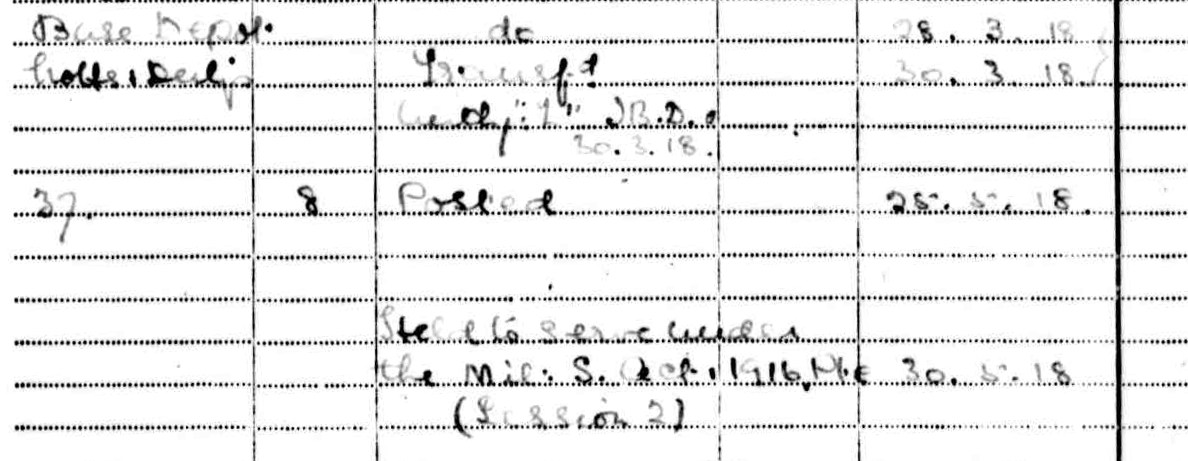 Base Depot. do 28. 3. 18
Notts. & Derbys Transfd 30. 3. 18.
under "L" I.B.D.
30. 3. 18.
37. 8 Posted 25. 5. 18.
Held to serve under
the Mil: S. Act. 1916, 30. 5. 18
(Session 2)